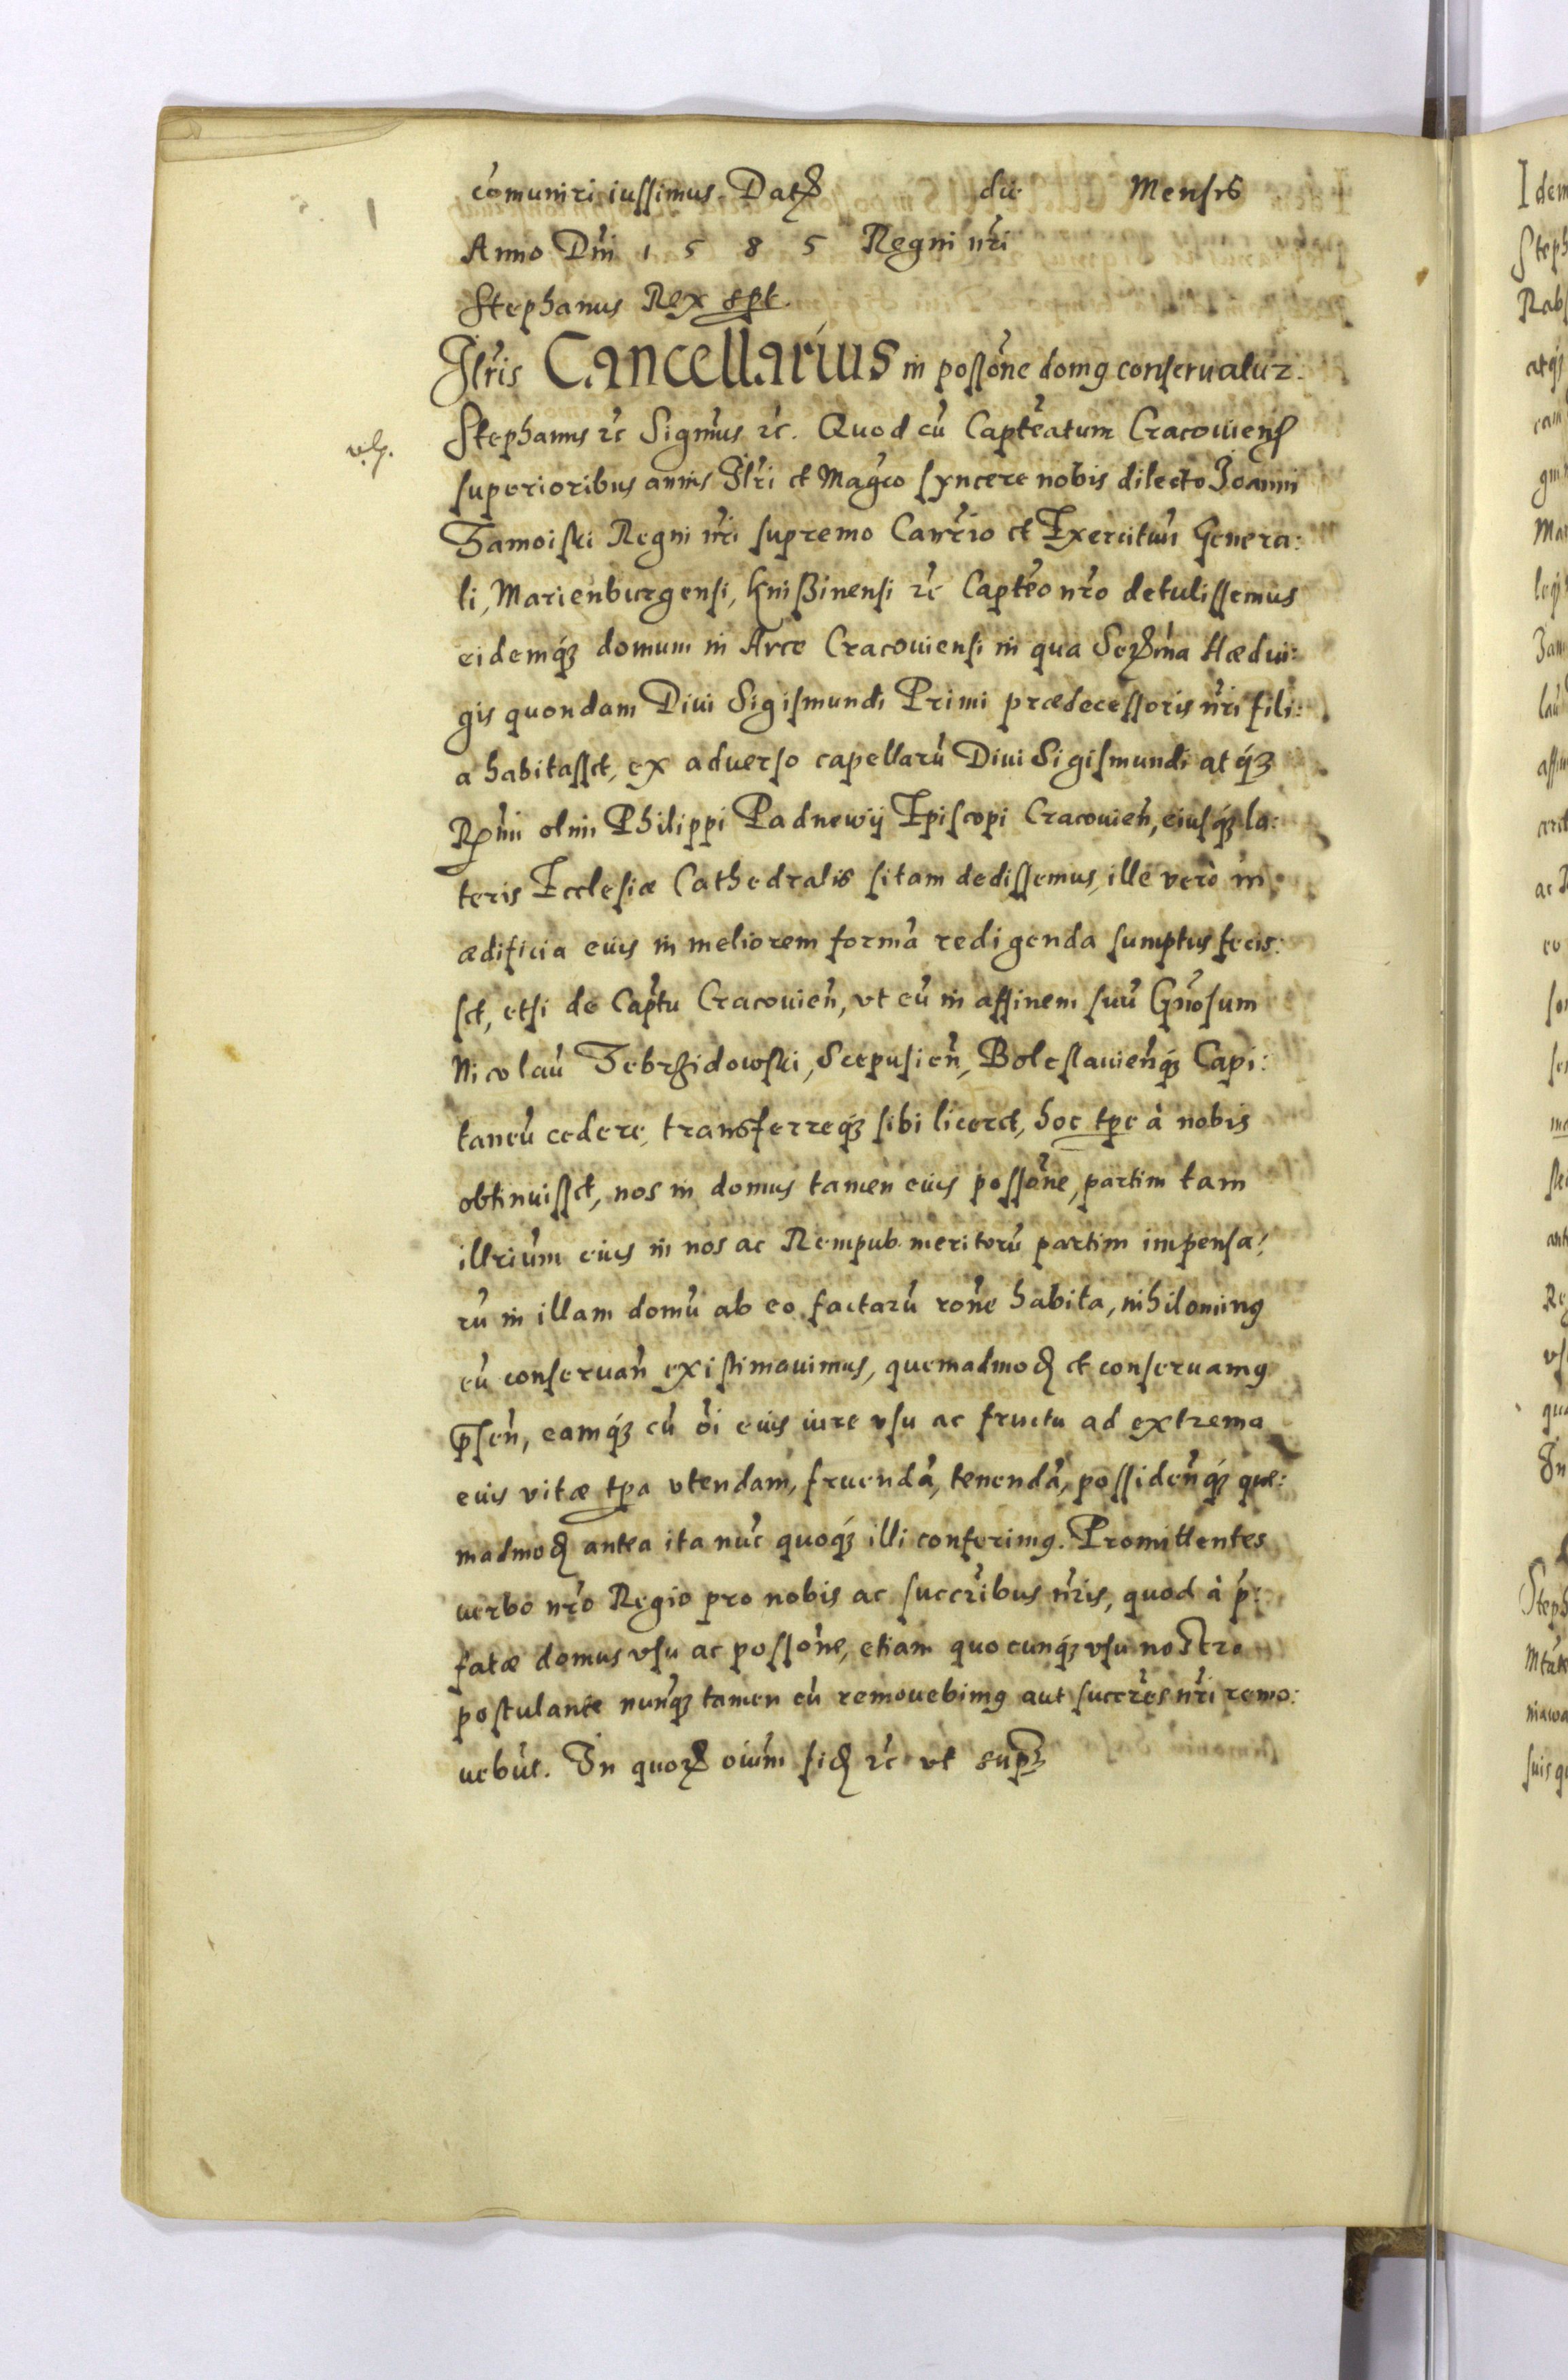 com̃uniri iussimus. Datꝝ die Mensis
Anno Dnĩ 1 5 8 5 Regni nrĩ
Stephanus Rex spt.
Illr̃is Cancellarius in possoñe domꝯ conseruatur.
Stephanus ꝛc̃ Sigmũs ꝛc̃. Quod cũ Capteãtum Cracouienß
superioribus annis Illr̃i et Magc̃o syncere nobis dilecto Joanni
Zamoiski Regni nrĩ supremo Canr̃io et Exercituũ Genera:
li, Marienburgensi, Knißinensi ꝛc̃ Capteõ nrõ detulissemus
eidemqꝫ domum in Arce Cracouiensi in qua Serꝫmã Hædui:
gis quondam Diui Sigismundi Primi prædecessoris nrĩ fili:
a habitasset, ex aduerso capellarũ Diui Sigismundi atqꝫ
Rꝫmĩ olim Philippi Padnewij Episcopi Cracouieñ, eiusqꝫ la:
teris Ecclesiæ Cathedralis sitam dedissemus, ille verò in
ædificia eius in meliorem formã redigenda sumptus fecis:
set, etsi de Captũ Cracouieñ, vt eũ in affinem suũ Gnõsum
Nicolaũ Zebrzidowski, Scepusieñ, Boleslauieñqꝫ Capi:
taneũ cedere, transferreqꝫ sibi liceret, hoc tpe à nobis
obtinuisset, nos in domus tamen eius possoñe, partim tam
illriũm eius in nos ac Rempub. meritorũ partim impensa:
rũ in illam domũ ab eo factarũ roñe habita, nihilominꝯ
eũ conseruañ existimauimus, quemadmoꝺ et conseruamꝯ
p̃señ, eamqꝫ cũ oĩ eius iure vsu ac fructu ad extrema
eius vitæ tpa vtendam, fruendã, tenendã, possideñqꝫ que:
madmoꝺ antea ita nũc quoqꝫ illi conferimꝯ. Promittentes
verbo nrõ Regio pro nobis ac succr̃ibus nrĩs, quod à p̃:
fatæ domus vsu ac possoñe, etiam quocunqꝫ vsu nostro
postulante nunqꝫ tamen eũ remouebimꝯ aut succr̃es nrĩ remo:
uebũt. In quorꝝ oiũm fiꝺ ꝛc̃ vt supꝫ